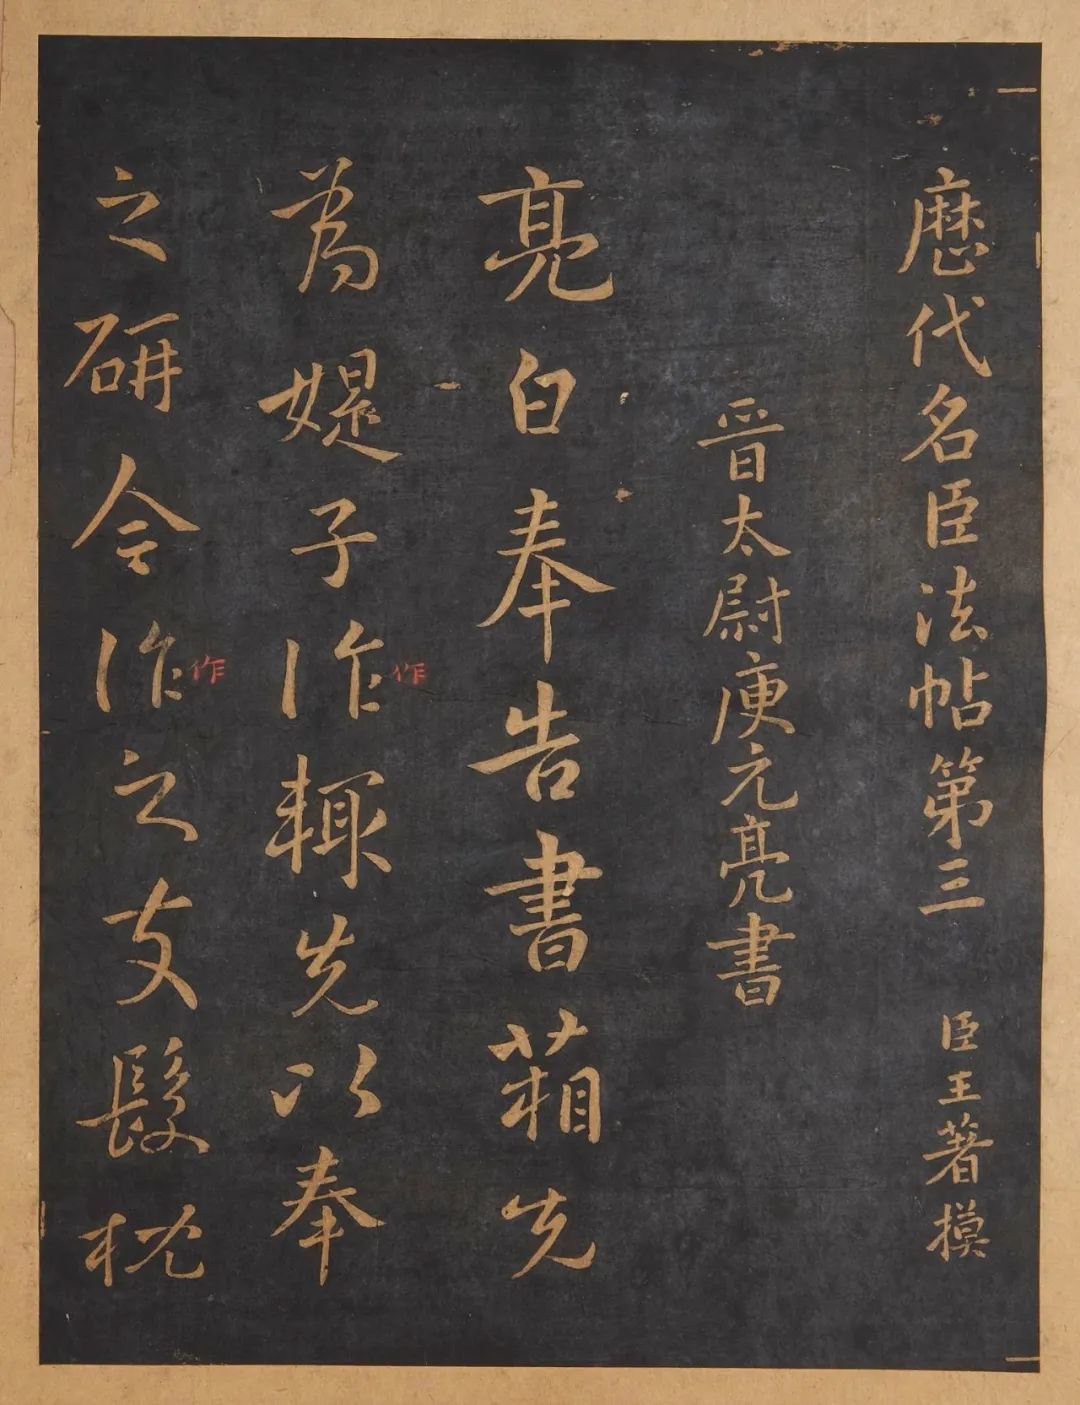 歷代名臣法帖第三 臣王著摸
晉太尉庾元亮書
亮白奉告書箱先
為媞子作輙先以奉
作
之研今作之支髮枕
作